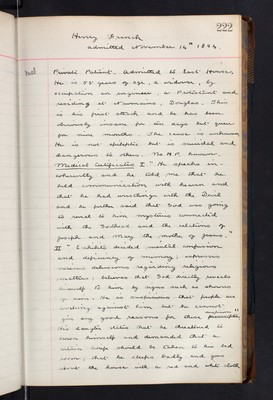 222
Henry French
admitted November 14th 1894.
Private Patient. Admitted to East House,
He is 55 years of age, a widower, by
occupation an engineer, a Protestant and
residing at Douglas. This
is his first attack and he has been
insane for ten days but queer
for nine months. The cause is unknown
He is not epileptic but is suicidal and
dangerous to others. No H.P. known.
Medical Certificates I "He speaks in-
coherently and he told me that he
held communication with heaven and
that he had wrestlings with the Devil
and he further said that God was going
to reveal to him mysteries connected
with the Godhead and the relations of
Joseph and Mary the mother of Jesus."
II "Exhibits decided mental confusion
and deficiency of memory; expresses
various delusions regarding religious
matters; believes that God directly reveals
himself to him by signs such as showers
of rain. He is suspicious that people are
working against him but he cannot
give any good reasons for these suspicions"
His daughter states that he threatened to
drown himself and demanded that a
knife should be taken to his bed
room; that he sleeps badly and goes
about the house with a red and white cloth